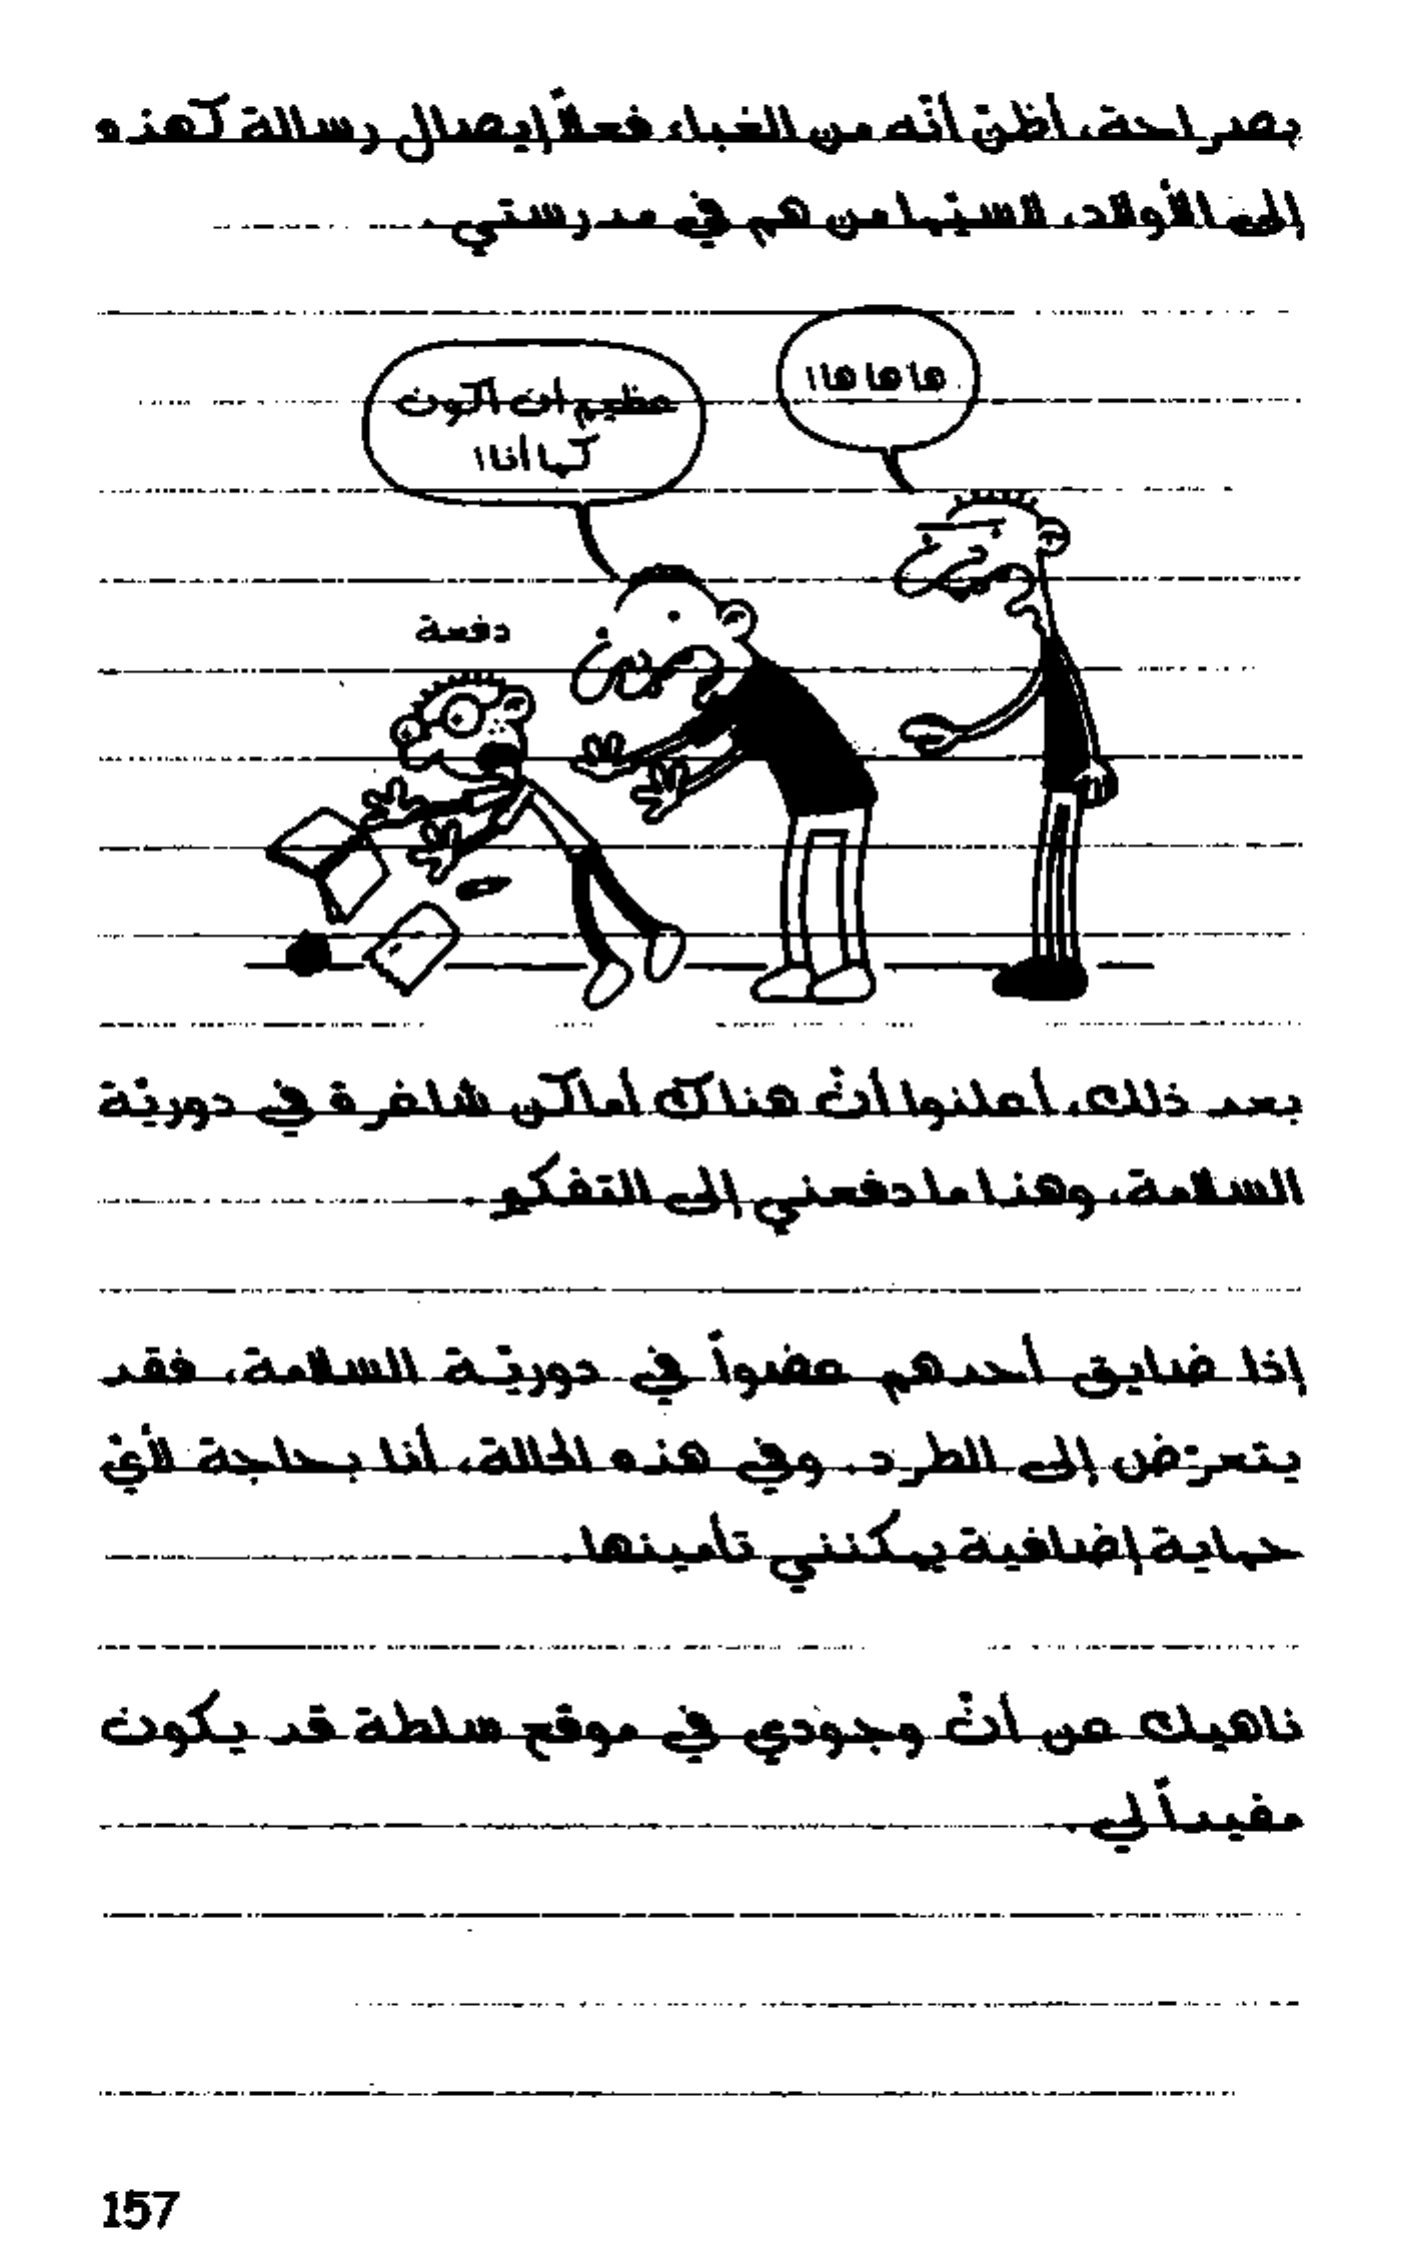 بصراحة، أظنّ أنّه من الغباء فعلاً إيصال رسالة كهذه
إلى الأولاد، لاسيّما من هم في مدرستي.
ها ها ها!
عظيم أن أكون
كما أنا!
دفعة
بعد ذلك، أعلنوا أنّ هناك أماكن شاغرة في دوريّة
السلامة، وهذا ما دفعني إلى التفكير.
إذا ضايق أحدهم عضواً في دوريّة السلامة، فقد
يتعرّض إلى الطرد. وفي هذه الحالة، أنا بحاجة لأيّ
حماية إضافية يمكنني تأمينها.
ناهيك عن أنّ وجودي في موقع سلطة قد يكون
مفيداً لي.
157